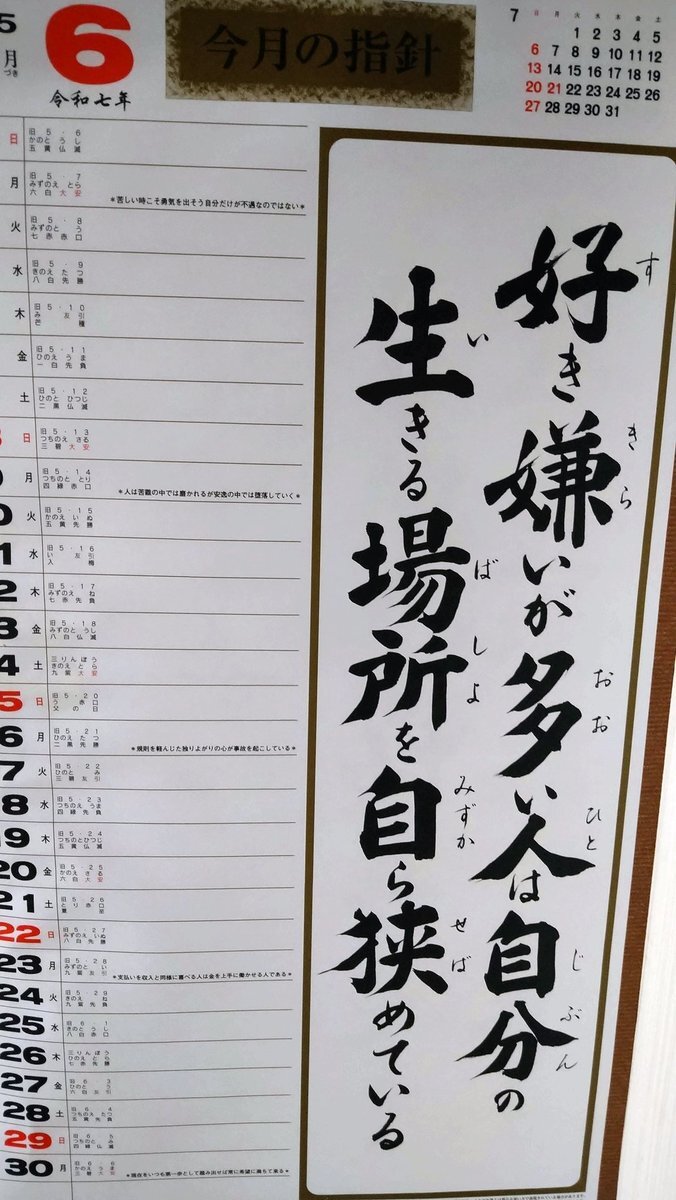 5
月
づき
6
令和七年
今月の指針
7
日 月 火 水 木 金 土
1 2 3 4 5
6 7 8 9 10 11 12
13 14 15 16 17 18 19
20 21 22 23 24 25 26
27 28 29 30 31
好き嫌いが多い人は自分の
す きら おお ひと じぶん
生きる場所を自ら狭めている
い ばしよ みずか せば
日 旧5・6
かのとうし
五黄仏滅
月 旧5・7
みずのえとら
六白大安
*苦しい時こそ勇気を出そう自分だけが不遇なのではない*
火 旧5・8
みずのとう
七赤赤口
水 旧5・9
きのえたつ
八白先勝
木 旧5・10
み 友引
芒種
金 旧5・11
ひのえうま
一白先負
土 旧5・12
ひのとひつじ
二黒仏滅
日 旧5・13
つちのえさる
三碧大安
月 旧5・14
つちのととり
四緑赤口
*人は苦難の中では磨かれるが安逸の中では堕落していく*
0 火 旧5・15
かのえいぬ
五黄先勝
1 水 旧5・16
い 友引
入梅
2 木 旧5・17
みずのえね
七赤先負
3 金 旧5・18
みずのとうし
八白仏滅
4 土 三りんぼう
きのえとら
九紫大安
5 日 旧5・20
う 赤口
父の日
6 月 旧5・21
ひのえたつ
二黒先勝
*規則を軽んじた独りよがりの心が事故を起こしている*
7 火 旧5・22
ひのとみ
三碧友引
18 水 旧5・23
つちのえうま
四緑先負
19 木 旧5・24
つちのとひつじ
五黄仏滅
20 金 旧5・25
かのえさる
六白大安
21 土 旧5・26
とり 赤口
夏至
22 日 旧5・27
みずのえいぬ
八白先勝
23 月 旧5・28
みずのとい
九紫友引
*支払いを収入と同様に喜べる人は金を上手に働かせる人である*
24 火 旧5・29
きのえね
九紫先負
25 水 旧6・1
きのとうし
八白赤口
26 木 三りんぼう
ひのえとら
七赤先勝
27 金 旧6・3
ひのとう
六白友引
28 土 旧6・4
つちのえたつ
五黄先負
29 日 旧6・5
つちのとみ
四緑仏滅
30 月 旧6・6
かのえうま
三碧大安
*現在をいつも第一歩として踏み出せば常に希望に満ちて来る*